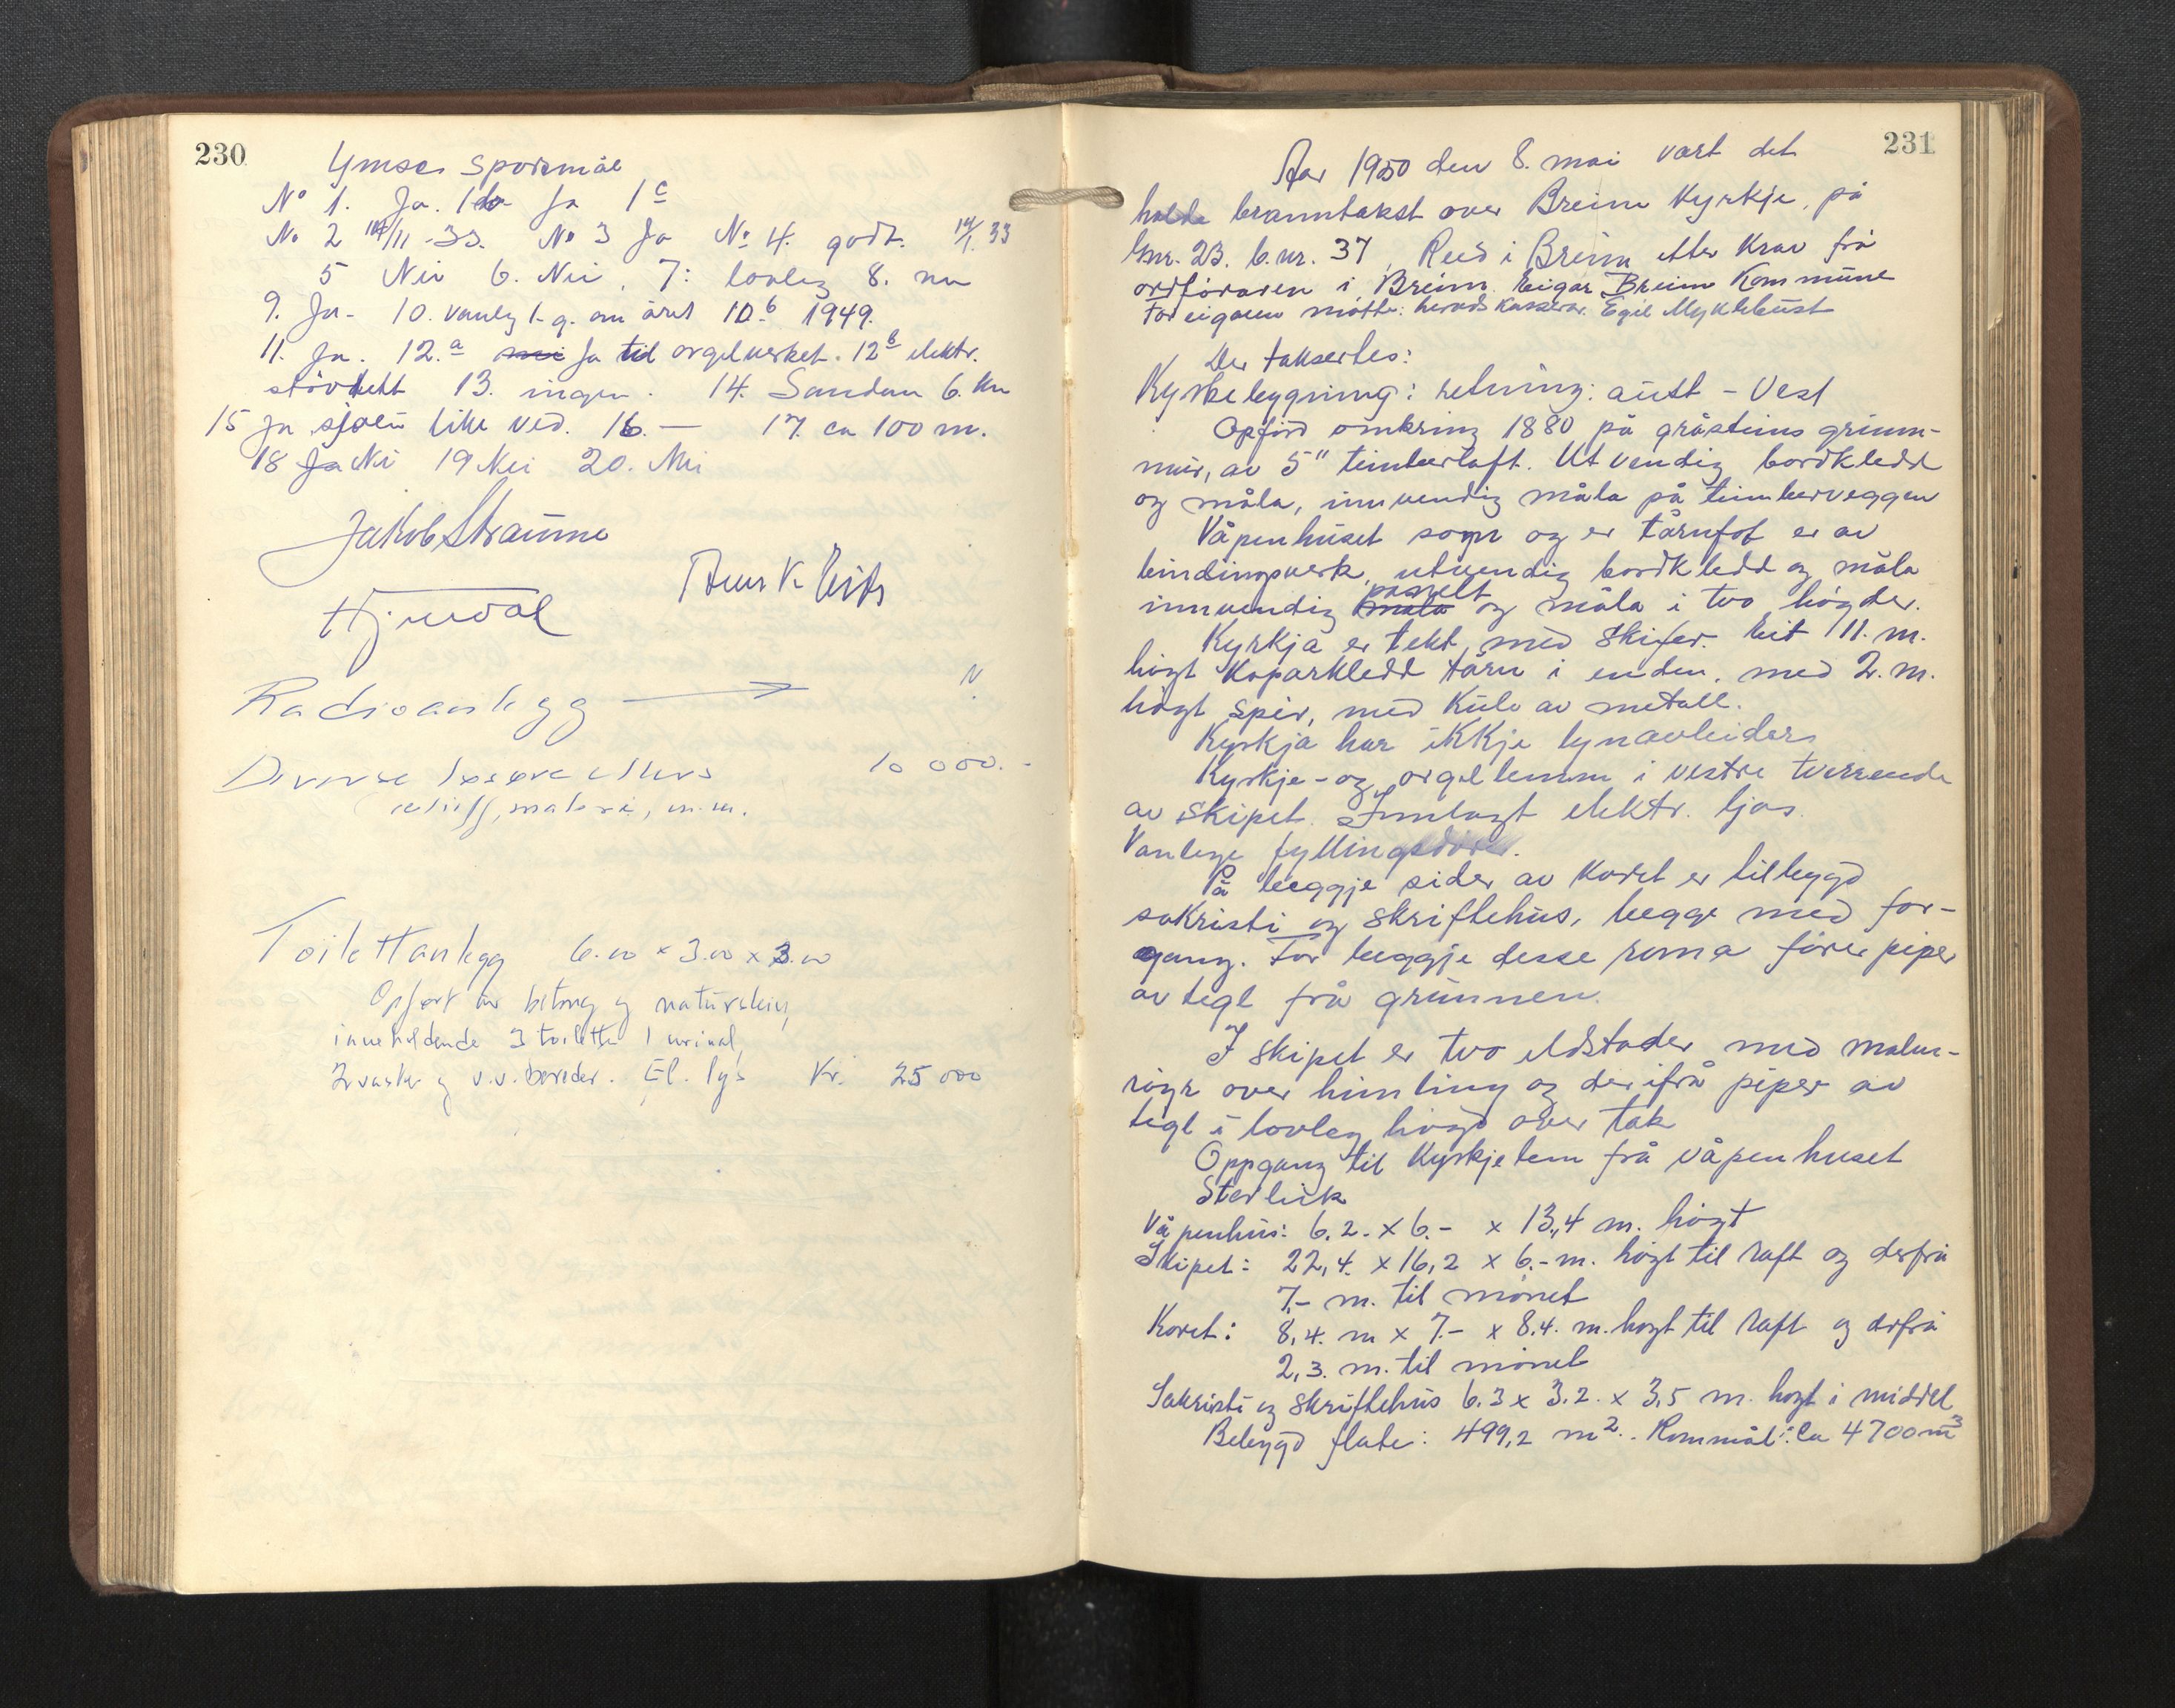 230
Ymse Spørsmål
No 1. Ja. 1b Ja 1c
No 2 14/11-33. No 3 Ja No 4. godt. 14/1. 33
5 Nei 6. Nei, 7: lovleg 8. nei
9. Ja - 10. vanleg 1. g. om året 10.b 1949.
11. Ja. 12.a Ja til orgelverket. 12b elektr.
støvtett 13. ingen. 14. Sandane 6. km
15 Ja sjøen like ved. 16. — 17. ca 100 m.
18 Ja Nei 19 Nei 20. Nei
Jakob Straume
Radioanlegg
Diverse 10 000.-
relieff, maleri, m.m.
Toilettanlegg 6.00 x 3.00 x 3.00
Opført av betong og naturstein,
inneholdende 3 toiletter 1 urinal,
2 vasker og v.v. bereder. El. lys Kr. 25 000
231
Aar 1950 den 8. mai vart det
halde branntakst over Breim Kyrkje, på
Gnr. 23. b.nr. 37, Reed i Breim etter Krav frå
ordføraren i Breim. Eigar Breim Kommune
For eigaren møtte: heradskasserar Egil Myklebust
Der taksertes:
Kyrkebygning: retning: aust - Vest
Opførd omkring 1880 på gråsteins grunn-
mur, av 5" timberlaft. Utvendig bordkledd
og måla, innvendig måla på timberveggen
Våpenhuset som og er tårnfot er av
bindingsverk, utvendig bordkledd og måla
innvendig måla panelt og måla i two høgder.
Kyrkja er tekt med Skifer. Eit 11. m.
høgt Koparkledd tårn i enden, med 2. m.
høgt spir, med Kule av metall.
Kyrkja har ikkje lynavleidar
Kyrkje- og orgellemm i vestre tverrende
av skipet. Innlagt elektr. ljos.
Vanlege fyllingsdører.
På beggje sider av Koret er tilbygd
sakristi og skriftehus, begge med for-
gang. For beggje desse roma fører piper
av tegl frå grunnen.
I skipet er two eldstader med malm-
røyr over himling og derifrå piper av
tegl i lovleg høgd over tak
Oppgang til Kyrkjelem frå våpenhuset
Storleik
Våpenhus: 6.2. x 6.- x 13,4 m. høgt
Skipet: 22,4. x 16,2 x 6.- m. høgt til raft og derfrå
7.- m. til mønet
Koret: 8,4. m x 7.- x 8.4. m. høgt til raft og derfrå
2,3. m. til mønet
Sakristi og skriftehus 6.3 x 3.2. x 3,5 m. høgt i middel
Bebygd flate: 499,2 m2. Rommål: Ca 4700 m3